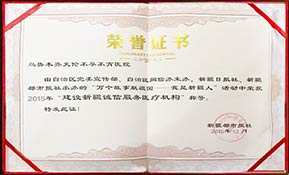 荣誉证书
乌鲁木齐天伦不孕不育医院
由自治区党委宣传部、自治区网信办主办，新疆日报社、新疆
都市报社承办的“万个故事献祖国——我是新疆人”活动中荣获
2015年“建设新疆诚信服务医疗机构”称号。
特发此证！
新疆都市报社
2015年12月